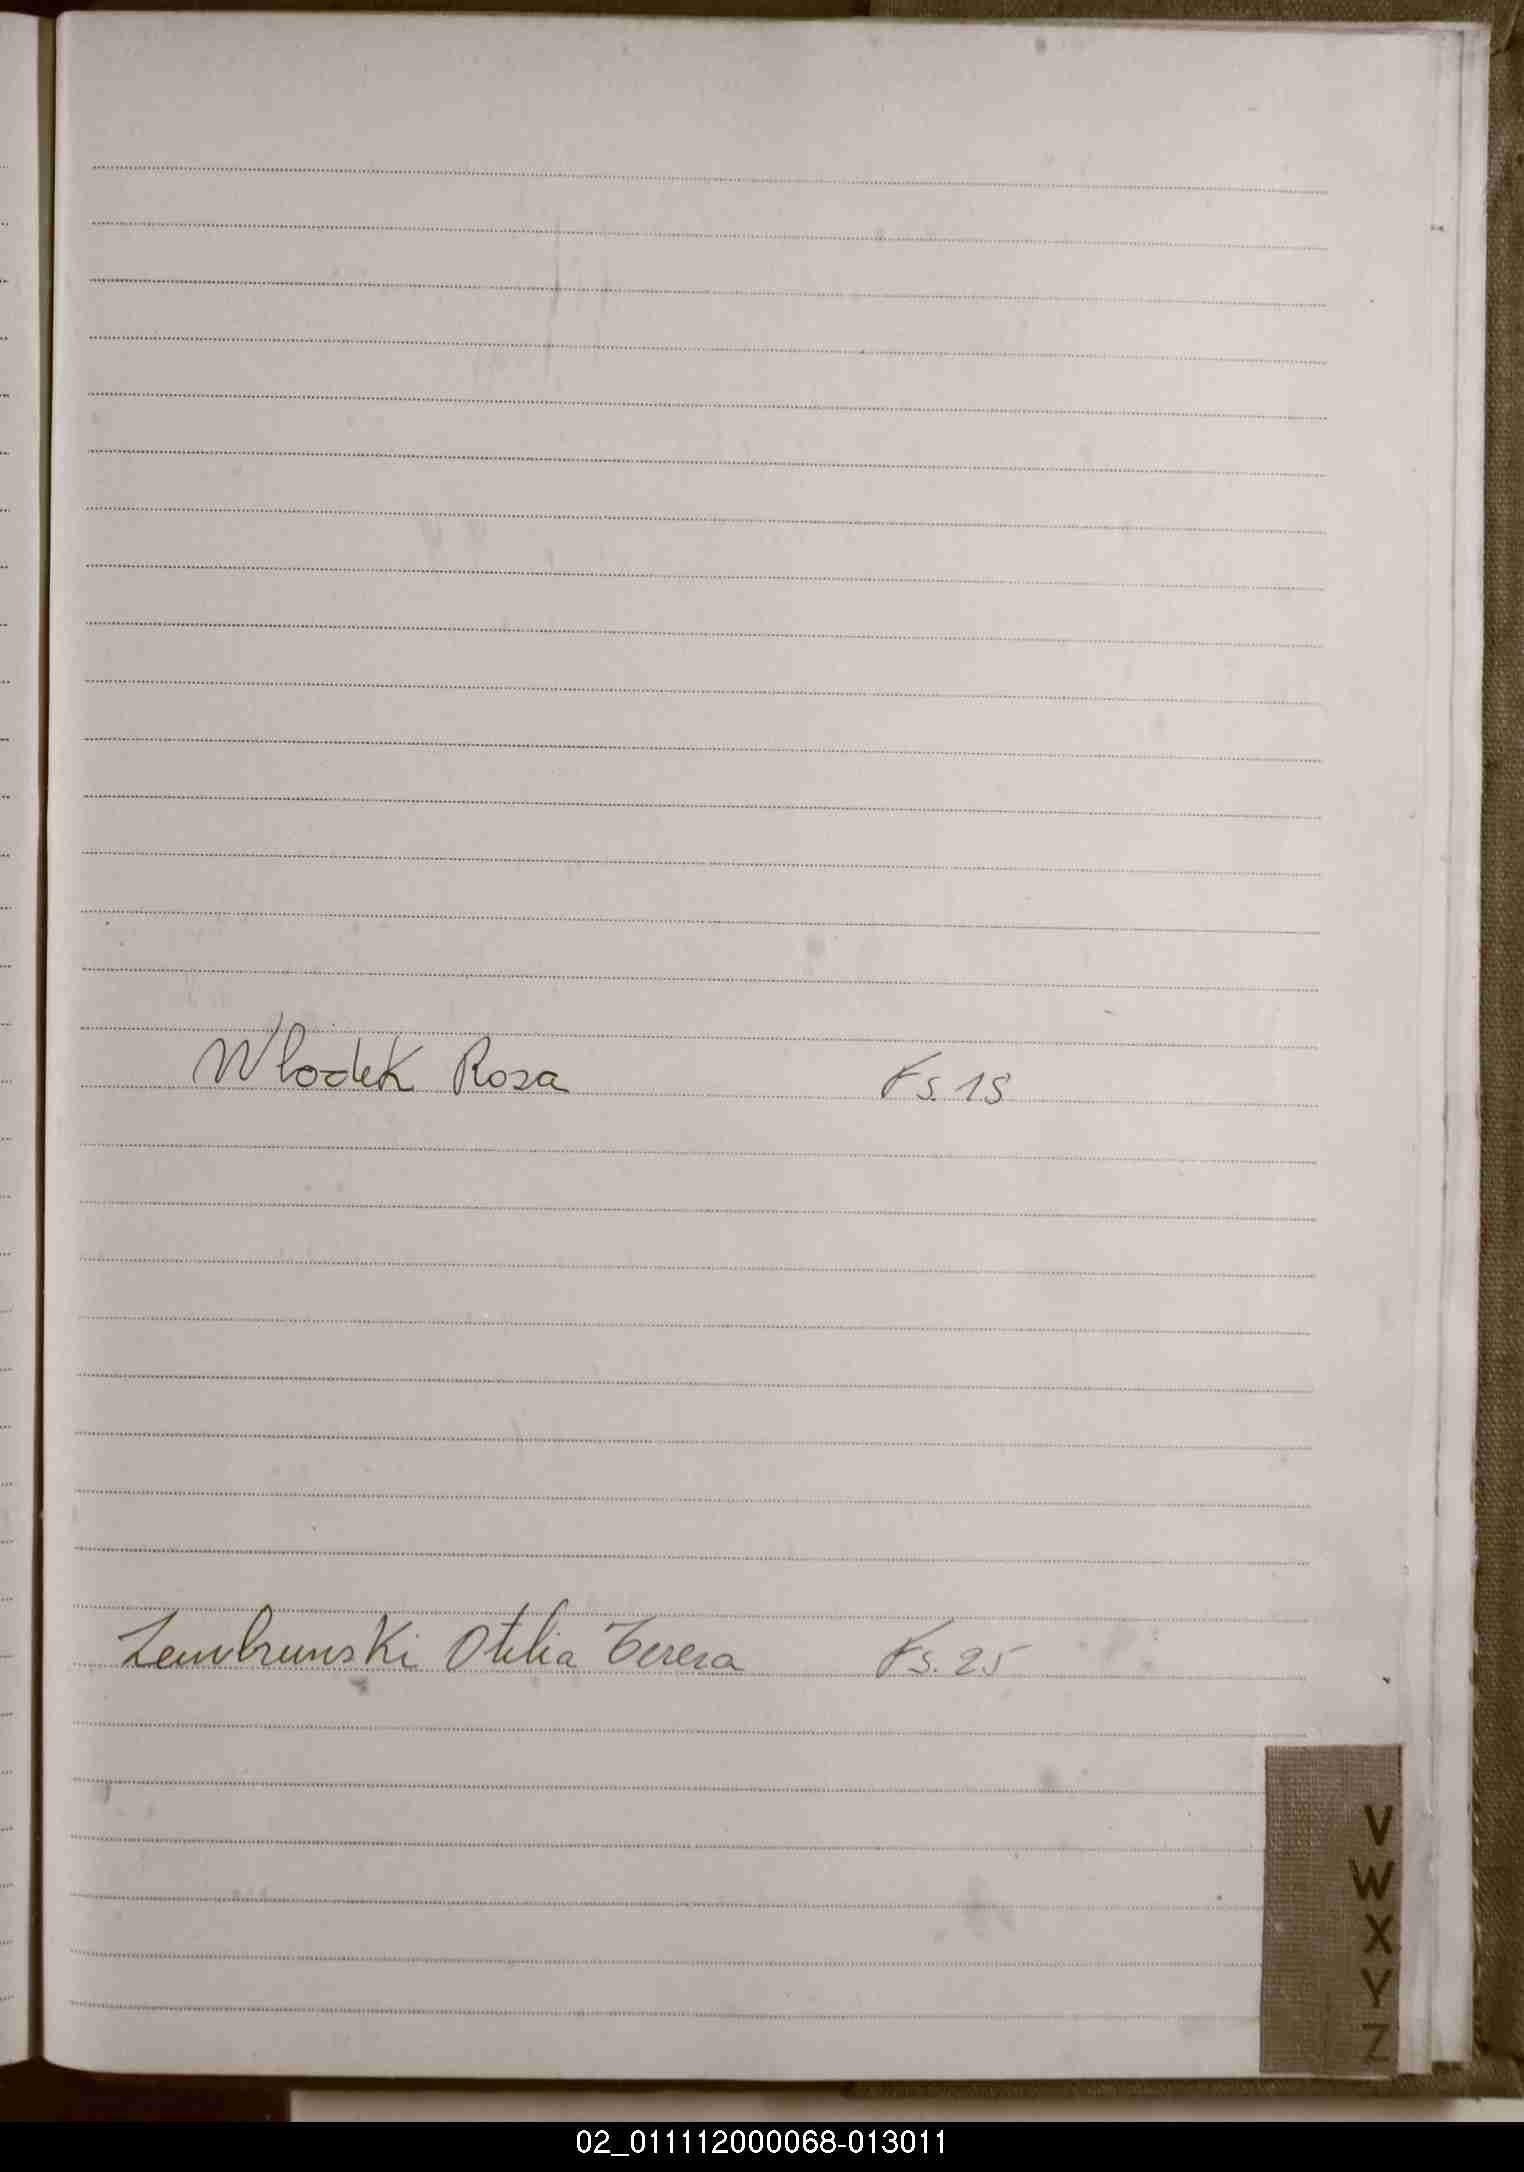 Wlodek Rosa Fs. 18
Zembrunski Otilia Teresa Fs. 25
V
W
X
Y
Z
02_011112000068-013011